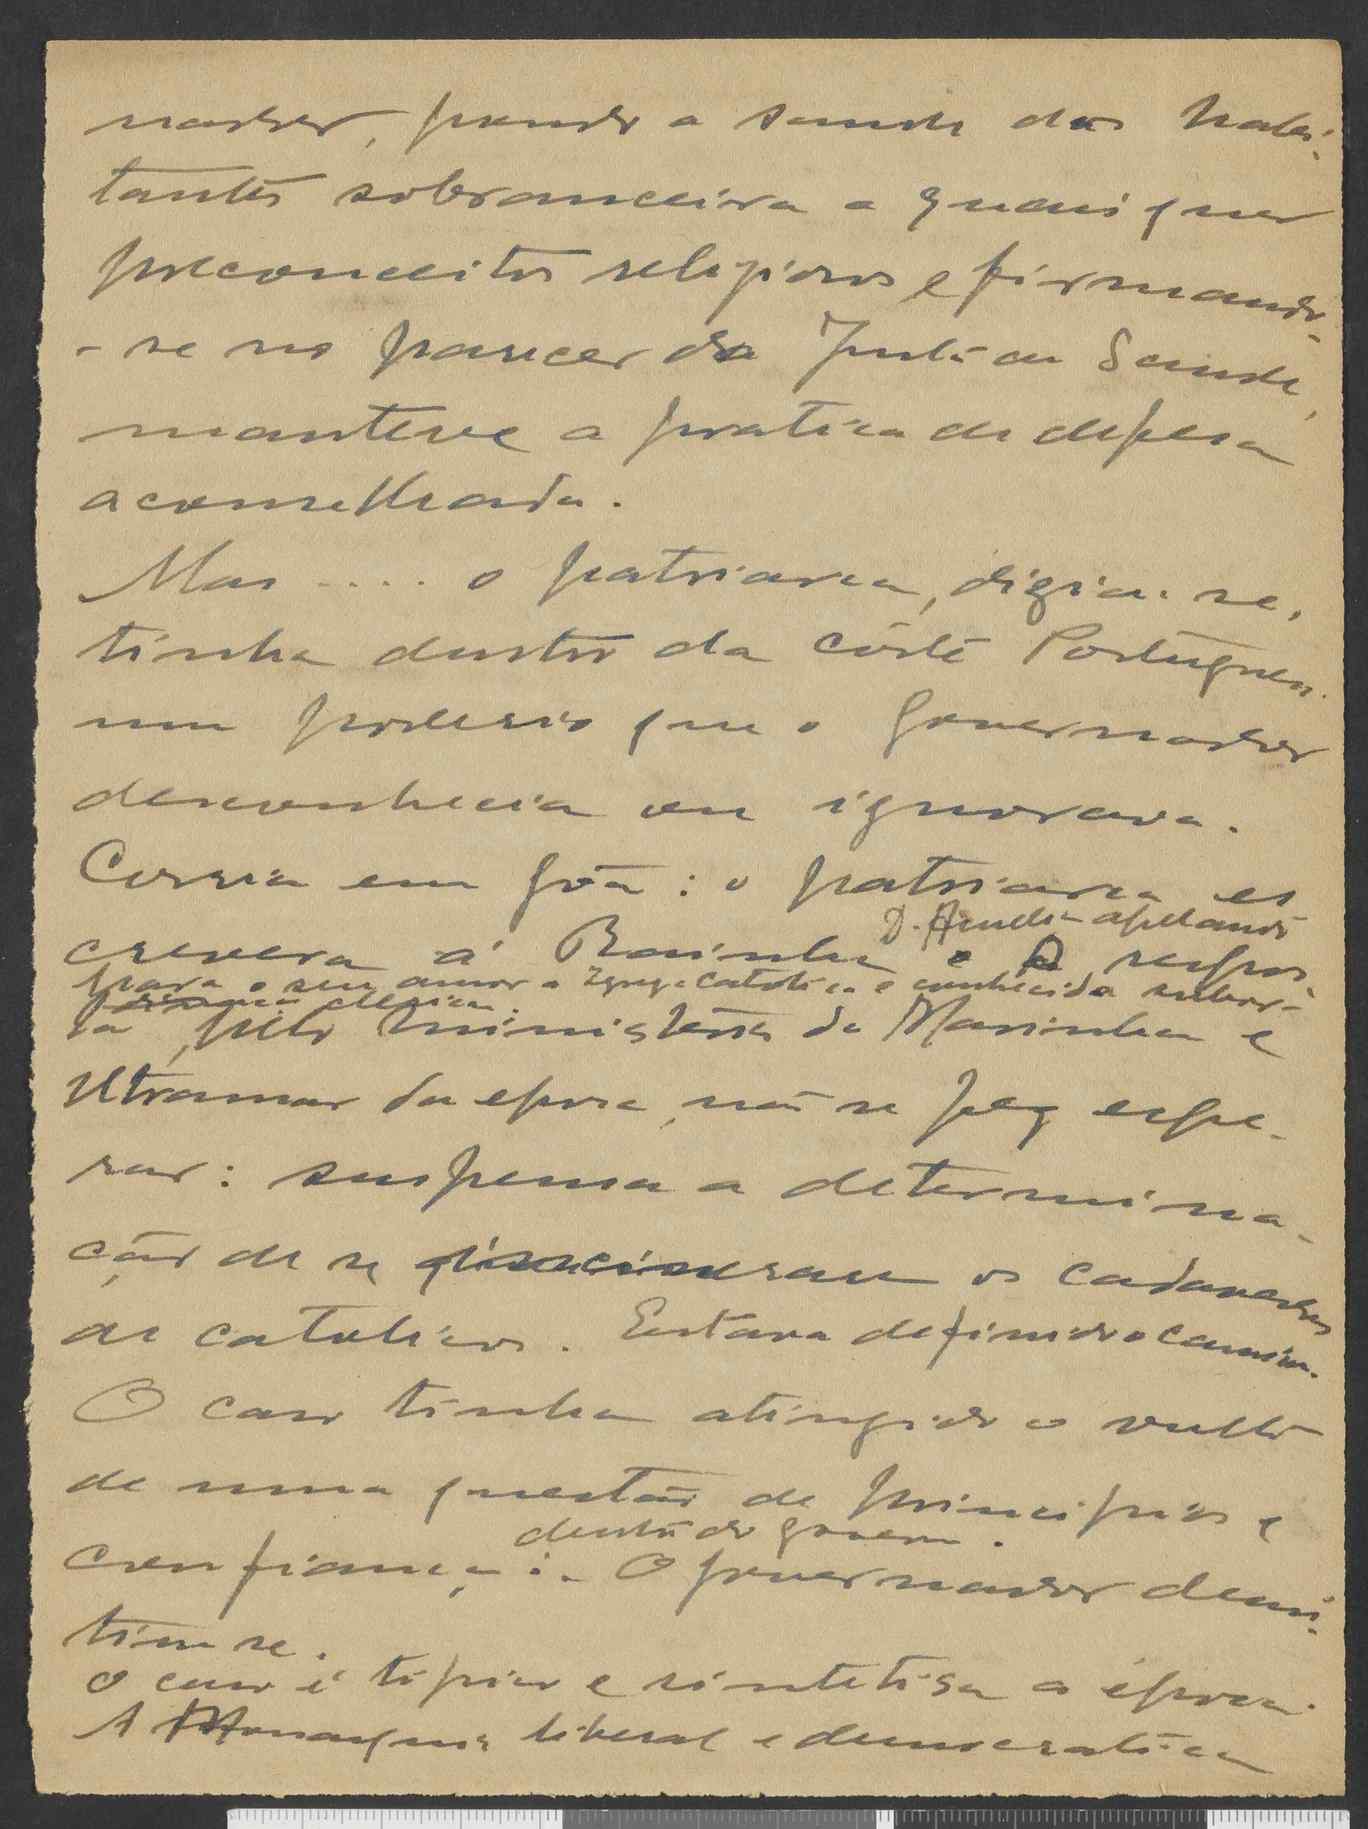 nador, pondo a saude dos habi-
tantes sobranceira a quaisquer
preconceitos religiosos e firmando-
-se no parecer da Junta de Saude,
manteve a pratica de defesa
aconselhada.
Mas .... o patriarca, dizia-se,
tinha dentro da côrte Portuguesa
um poderio que o Governador
desconhecia ou ignorava.
Corria em Gôa: o patriarca es
D. Amelia apelando
crevera á Rainha e a respos-
para o seu amor a Igreja Catolica e conhecida subor-
clerical.
ta, pelo ministério da Marinha e
Ultramar da epoca, não se fez espe-
rar: suspensa a determina-
ção de se incinerarem os cadaveres
de catolicos. Estava definido o caminho.
O caso tinha atingido o vulto
de uma questão de principios e
dentro do governo.
confiança :. O governador demi-
tiu-se.
O caso é tipico e sintetisa a época.
A Monarquia liberal e democratica